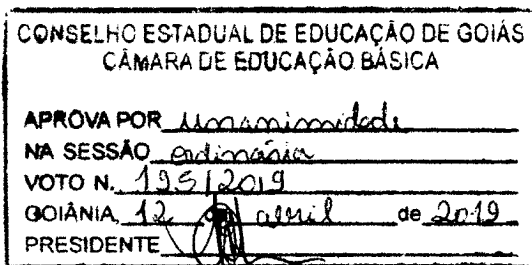 CONSELHO ESTADUAL DE EDUCAÇÃO DE GOIÁS
CÂMARA DE EDUCAÇÃO BÁSICA
APROVA POR unanimidade
NA SESSÃO ordinária
VOTO N. 195/2019
GOIÂNIA, 12 de abril de 2019
PRESIDENTE